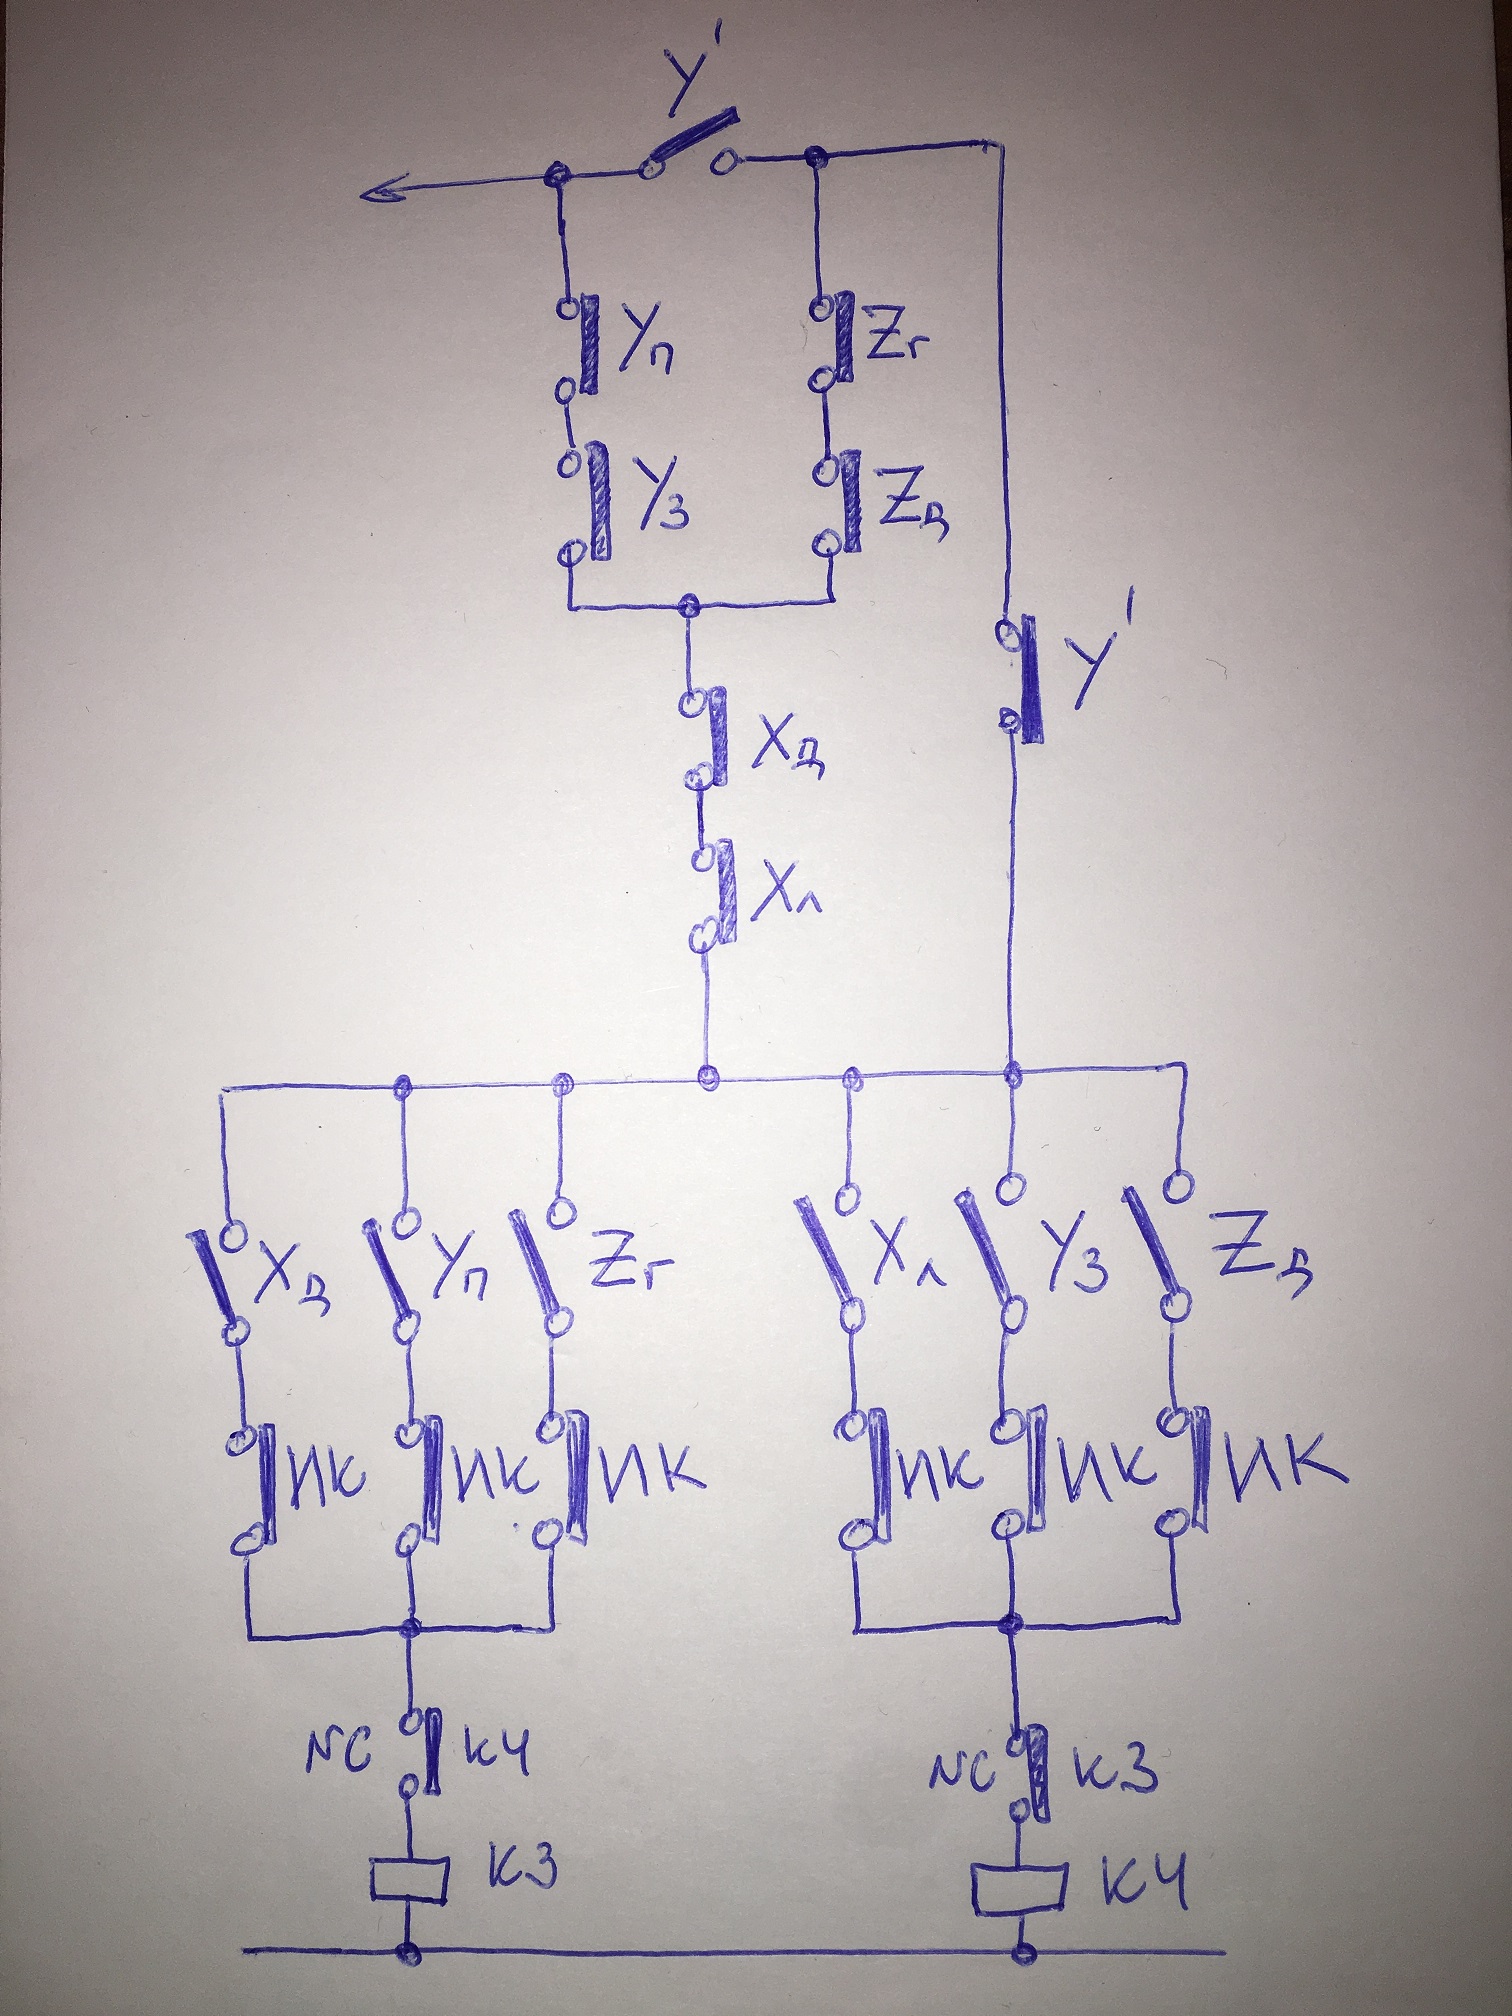 Y'
Yп Zг
Yз Zд
Y'
Xд
Xл
Xд Yп Zг Xл Yз Zд
ИК ИК ИК ИК ИК ИК
NC К4 NC К3
К3 К4